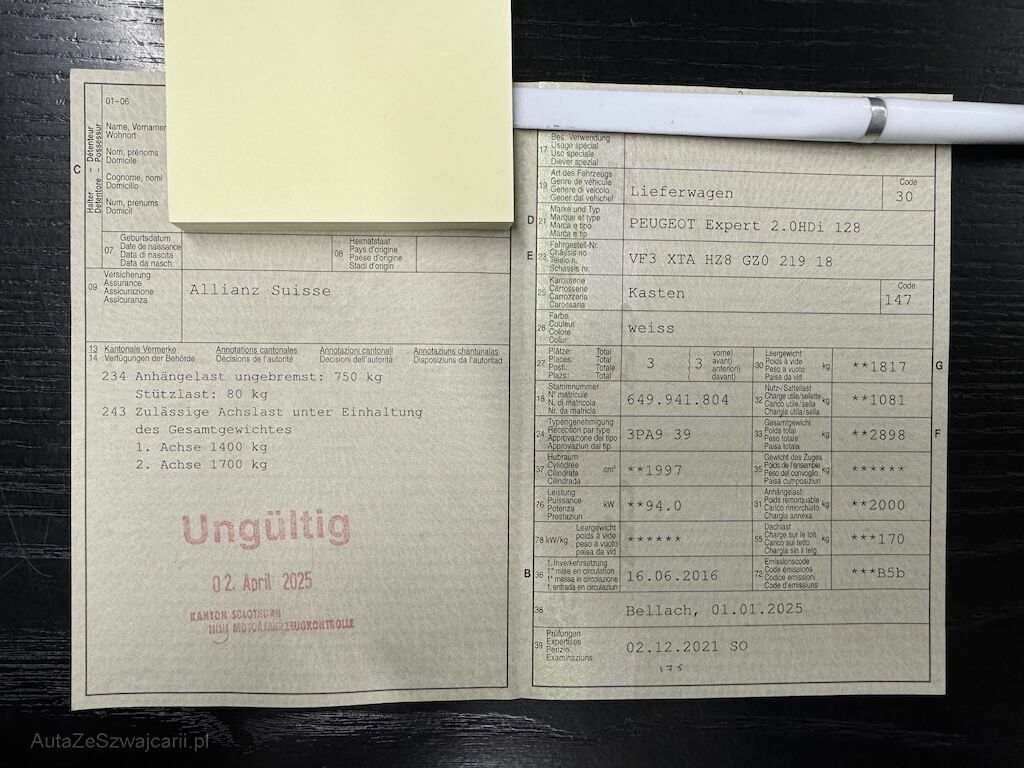 01-06
C
Halter – Détenteur
Detentore – Possessur
Name, Vornamen
Wohnort
Nom, prénoms
Domicile
Cognome, nomi
Domicilio
Num, prenums
Domicil
07
Geburtsdatum
Date de naissance
Data di nascita
Data da nasch.
08
Heimatstaat
Pays d'origine
Paese d'origine
Stadi d'origin
09
Versicherung
Assurance
Assicurazione
Assicuranza
Allianz Suisse
13
14
Kantonale Vermerke
Verfügungen der Behörde
Annotations cantonales
Décisions de l'autorité
Annotazioni cantonali
Decisioni dell'autorità
Annotaziuns chantunalas
Disposiziuns da l'autoritad
234 Anhängelast ungebremst: 750 kg
Stützlast: 80 kg
243 Zulässige Achslast unter Einhaltung
des Gesamtgewichtes
1. Achse 1400 kg
2. Achse 1700 kg
Ungültig
02. April 2025
KANTON SOLOTHURN
MOTORFAHRZEUGKONTROLLE
17
Bes. Verwendung
Usage spécial
Uso speciale
Diever spezial
19
Art des Fahrzeugs
Genre de véhicule
Genere di veicolo
Gener dal vehichel
Lieferwagen
Code
30
D
21
Marke und Typ
Marque et type
Marca e tipo
Marca e tip
PEUGEOT Expert 2.0HDi 128
E
23
Fahrgestell-Nr.
Châssis no
Telaio n.
Schassis nr.
VF3 XTA HZ8 GZ0 219 18
25
Karosserie
Carrosserie
Carrozzeria
Carossaria
Kasten
Code
147
26
Farbe
Couleur
Colore
Colur
weiss
27
Plätze: Total
Places: Total
Posti: Totale
Plazs: Total
3
(3
vorne)
avant)
anteriori)
davant)
30
Leergewicht
Poids à vide
Peso a vuoto
Paisa da vid
kg
**1817
G
18
Stammnummer
N° matricule
N. di matricola
Nr. da matricla
649.941.804
32
Nutz-/Sattellast
Charge utile/sellette
Carico utile/sella
Chargia utila/sella
kg
**1081
24
Typengenehmigung
Réception par type
Approvazione del tipo
Approvaziun dal tip
3PA9 39
33
Gesamtgewicht
Poids total
Peso totale
Paisa totala
kg
**2898
F
37
Hubraum
Cylindrée
Cilindrata
Cilindrada
cm³
**1997
35
Gewicht des Zuges
Poids de l'ensemble
Peso del convoglio
Paisa cumposiziun
kg
******
76
Leistung
Puissance
Potenza
Prestaziun
kW
**94.0
31
Anhängelast
Poids remorquable
Carico rimorchiato
Chargia annexa
kg
**2000
78 kW/kg
Leergewicht
poids à vide
peso a vuoto
paisa da vid
******
55
Dachlast
Charge sur le toit
Carico sul tetto
Chargia sin il tetg
kg
***170
B
36
1. Inverkehrsetzung
1re mise en circulation
1a messa in circolazione
1. entrada en circulaziun
16.06.2016
72
Emissionscode
Code émissions
Codice emissioni
Code d'emissiuns
***B5b
38
Bellach, 01.01.2025
39
Prüfungen
Expertises
Perizie
Examinaziuns
02.12.2021 SO
175
AutaZeSzwajcarii.pl